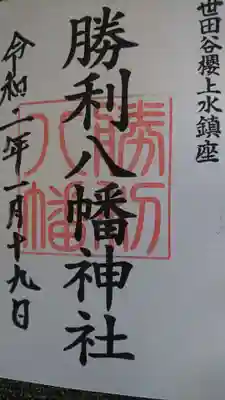 世田谷櫻上水鎮座
勝利八幡神社
勝利
八幡
令和二年一月十九日